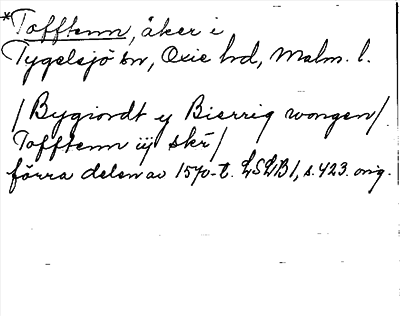 *Tofftenn, åker i
Tygelsjö sn, Oxie hd, Malm. l.
/Bygiordt y Bierrig wongen/
Tofftenn iij skr/
förra delen av 1570-t. LSLB 1, s. 423. orig.